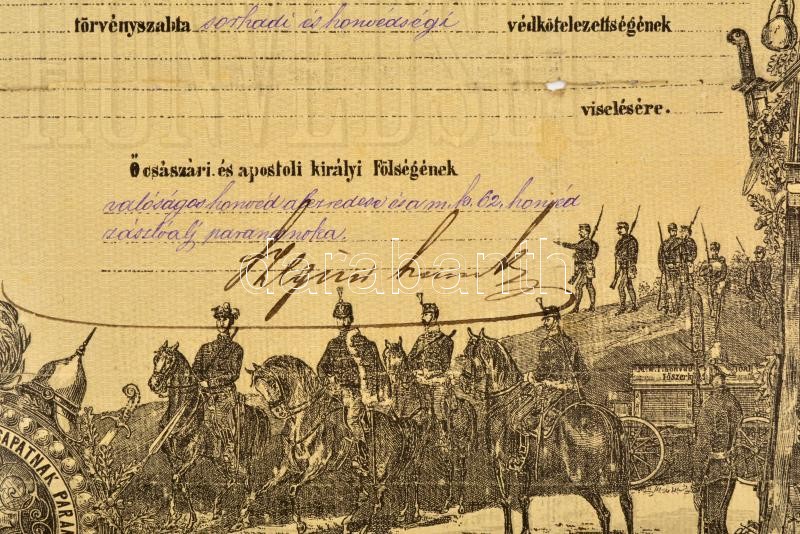 törvényszabta sorhadi és honvédségi védkötelezettségének
HONVÉDSÉG
viselésére.
Ő császári és apostoli királyi Fölségének
valóságos honvéd alezredese és a m. k. 62. honvéd
zászlóalj parancsnoka.
darabanth
CSAPATNAK PARAN